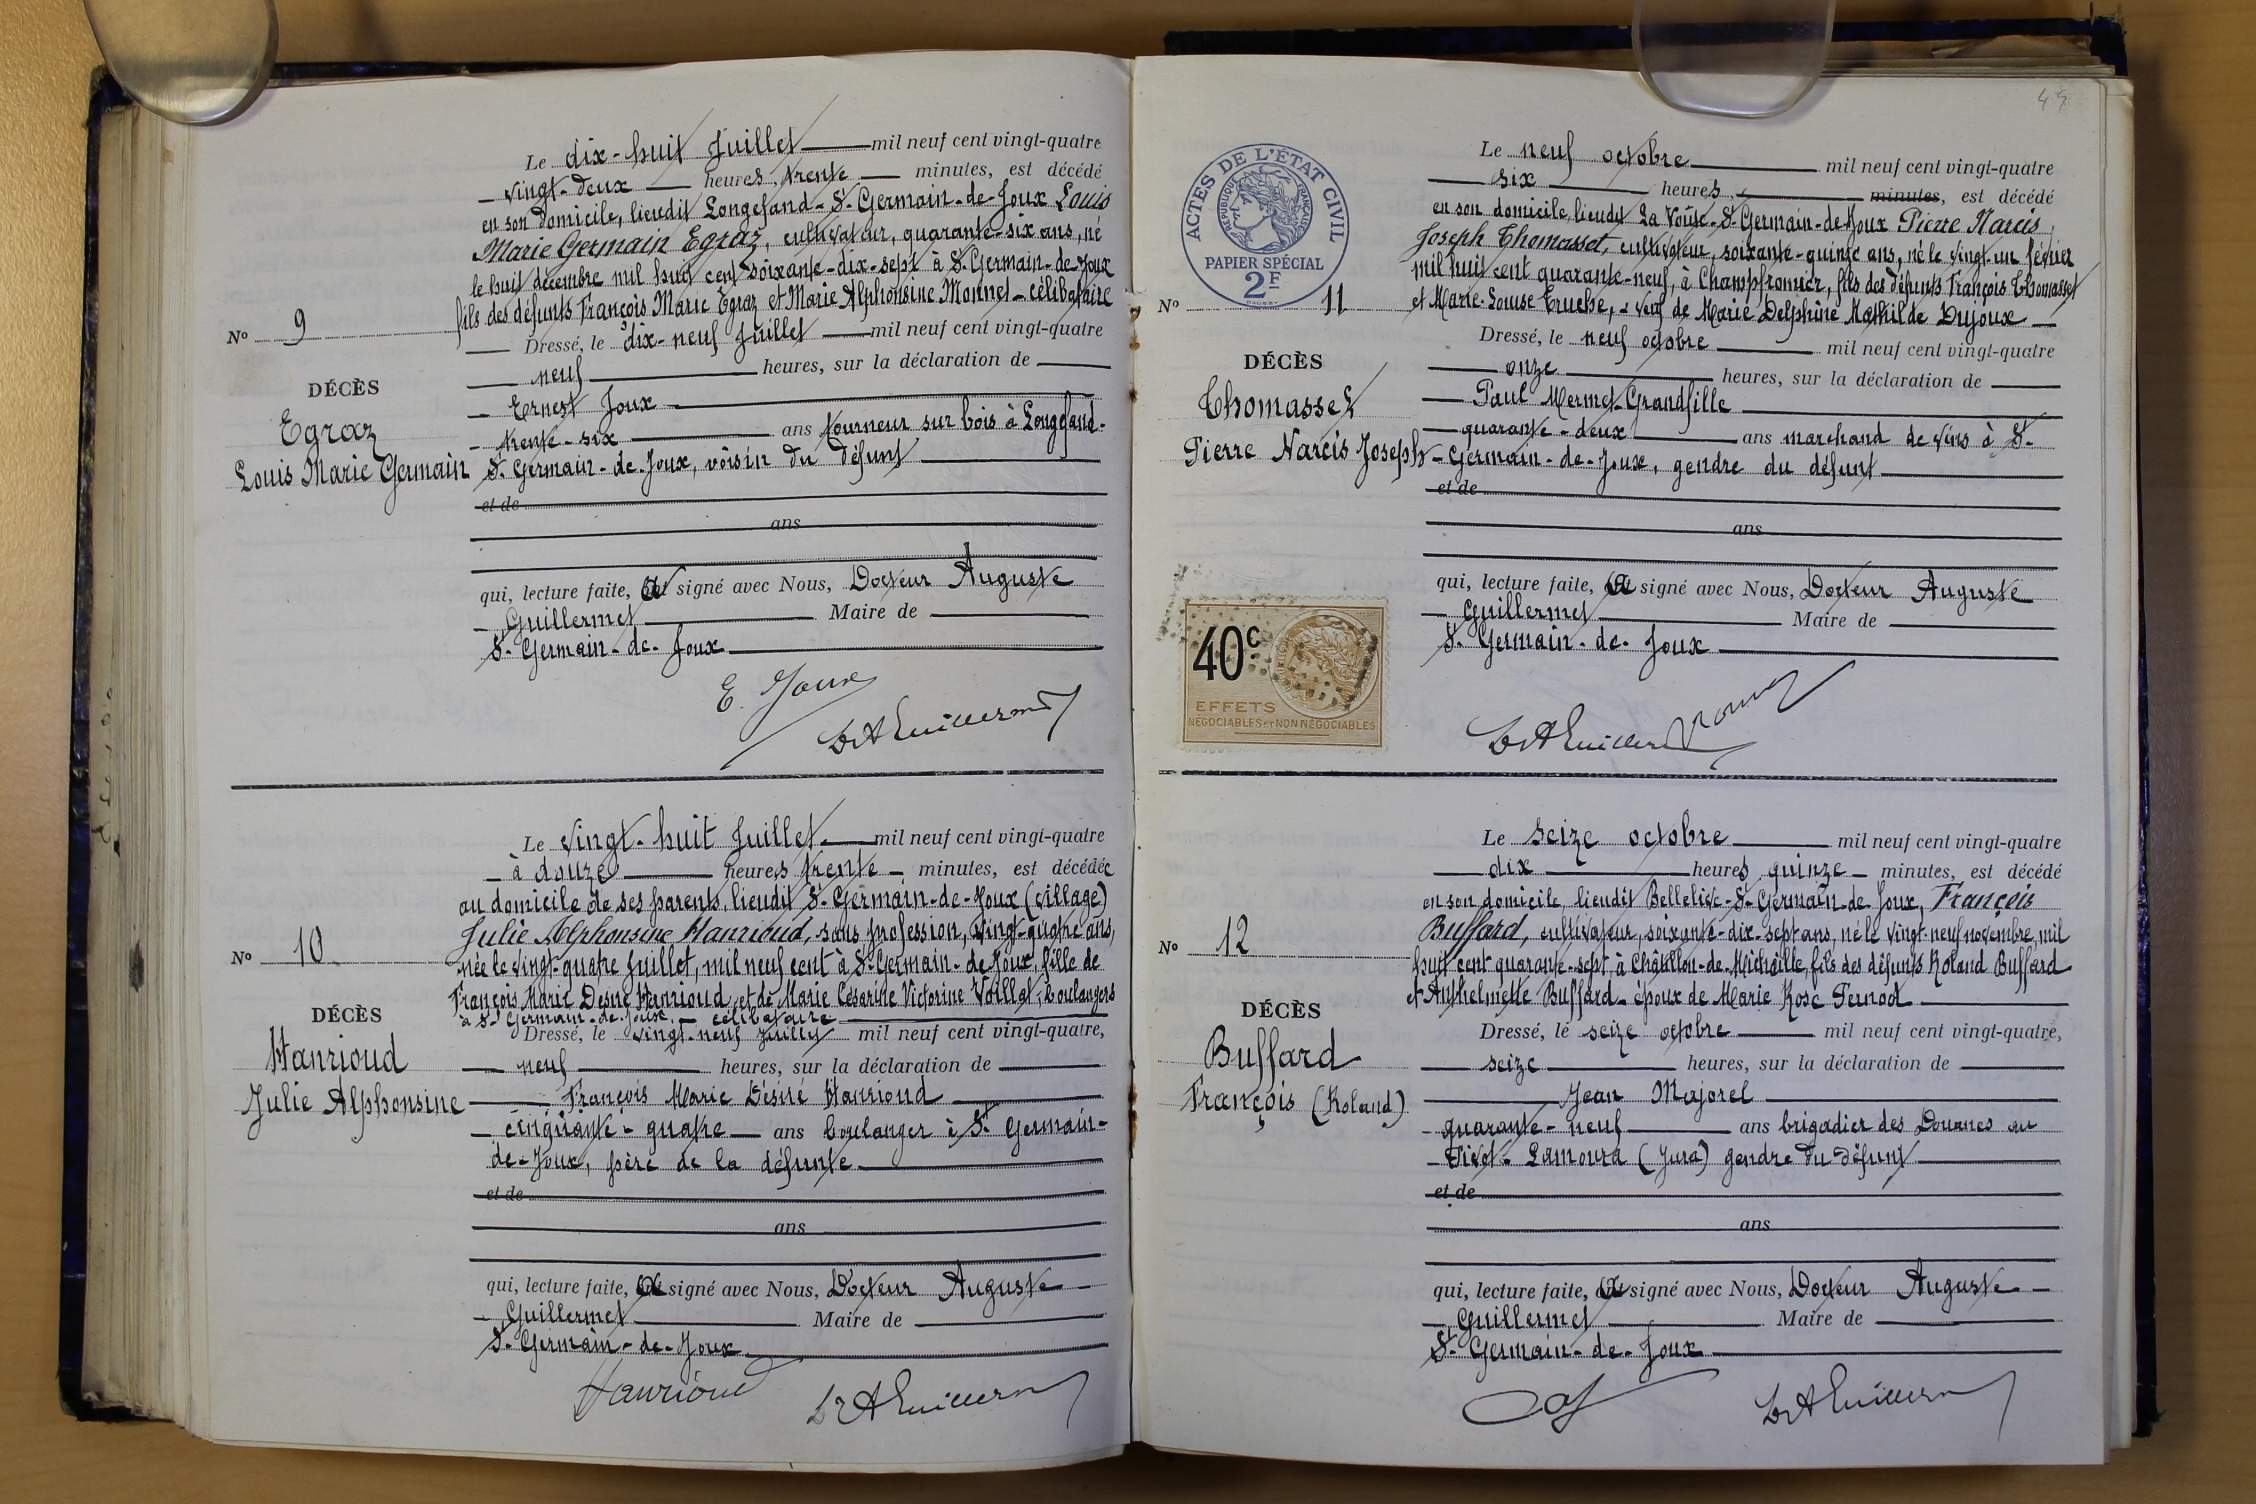 Le dix-huit Juillet mil neuf cent vingt-quatre
vingt-deux heures, trente minutes, est décédé
en son domicile, lieudit Longefand - St Germain-de-Joux Louis
Marie Germain Egraz, cultivateur, quarante-six ans, né
le huit décembre mil huit cent soixante-dix-sept à St Germain-de-Joux
fils des défunts François Marie Egraz et Marie Alphonsine Monnet - célibataire
Dressé, le dix-neuf Juillet mil neuf cent vingt-quatre
neuf heures, sur la déclaration de
Ernest Joux
trente-six ans tourneur sur bois à Longefand-
St Germain-de-Joux, voisin du défunt
et de
ans
qui, lecture faite, a signé avec Nous, Docteur Auguste
Guillermet Maire de
St Germain-de-Joux
E. Joux
Dr A Guillermet
No 9
DÉCÈS
Egraz
Louis Marie Germain
Le vingt-huit Juillet mil neuf cent vingt-quatre
à douze heures trente minutes, est décédée
au domicile de ses parents, lieudit St Germain-de-Joux (village)
Julie Alphonsine Hanrioud, sans profession, vingt-quatre ans,
née le vingt-quatre Juillet, mil neuf cent à St Germain-de-Joux, fille de
François Marie Désiré Hanrioud, et de Marie Césarine Victorine Vaillat, boulangers
à St Germain-de-Joux, - célibataire
Dressé, le vingt-neuf Juillet mil neuf cent vingt-quatre,
neuf heures, sur la déclaration de
François Marie Désiré Hanrioud
cinquante-quatre ans boulanger à St Germain-
de-Joux, père de la défunte
et de
ans
qui, lecture faite, a signé avec Nous, Docteur Auguste
Guillermet Maire de
St Germain-de-Joux
Hanrioud
Dr A Guillermet
No 10
DÉCÈS
Hanrioud
Julie Alphonsine
ACTES DE L'ÉTAT CIVIL
RÉPUBLIQUE FRANÇAISE
PAPIER SPÉCIAL
2F
Le neuf octobre mil neuf cent vingt-quatre
six heures, minutes, est décédé
en son domicile, lieudit La Voûte - St Germain-de-Joux Pierre Narcis
Joseph Thomasset, cultivateur, soixante-quinze ans, né le vingt-un février
mil huit cent quarante-neuf, à Champfromier, fils des défunts François Thomasset
et Marie-Louise Truche, - veuf de Marie Delphine Mathilde Dujoux
Dressé, le neuf octobre mil neuf cent vingt-quatre
onze heures, sur la déclaration de
Paul Mermet-Grandfille
quarante-deux ans marchand de vins à St-
Germain-de-Joux, gendre du défunt
et de
ans
qui, lecture faite, a signé avec Nous, Docteur Auguste
Guillermet Maire de
St Germain-de-Joux
Dr A Guillermet
No 11
DÉCÈS
Thomasset
Pierre Narcis Joseph
40c
EFFETS
NÉGOCIABLES ET NON NÉGOCIABLES
Le seize octobre mil neuf cent vingt-quatre
dix heures quinze minutes, est décédé
en son domicile, lieudit Belleline - St Germain-de Joux, François
Buffard, cultivateur, soixante-dix-sept ans, né le vingt-neuf novembre, mil
huit cent quarante-sept, à Châtillon-de-Michaille, fils des défunts Roland Buffard
et Anthelmette Buffard - époux de Marie Rose Pernod
Dressé, le seize octobre mil neuf cent vingt-quatre,
seize heures, sur la déclaration de
Jean Majorel
quarante-neuf ans brigadier des Douanes au
Lamoura (Jura) gendre du défunt
et de
ans
qui, lecture faite, a signé avec Nous, Docteur Auguste
Guillermet Maire de
St Germain-de-Joux
Dr A Guillermet
No 12
DÉCÈS
Buffard
François (Roland)